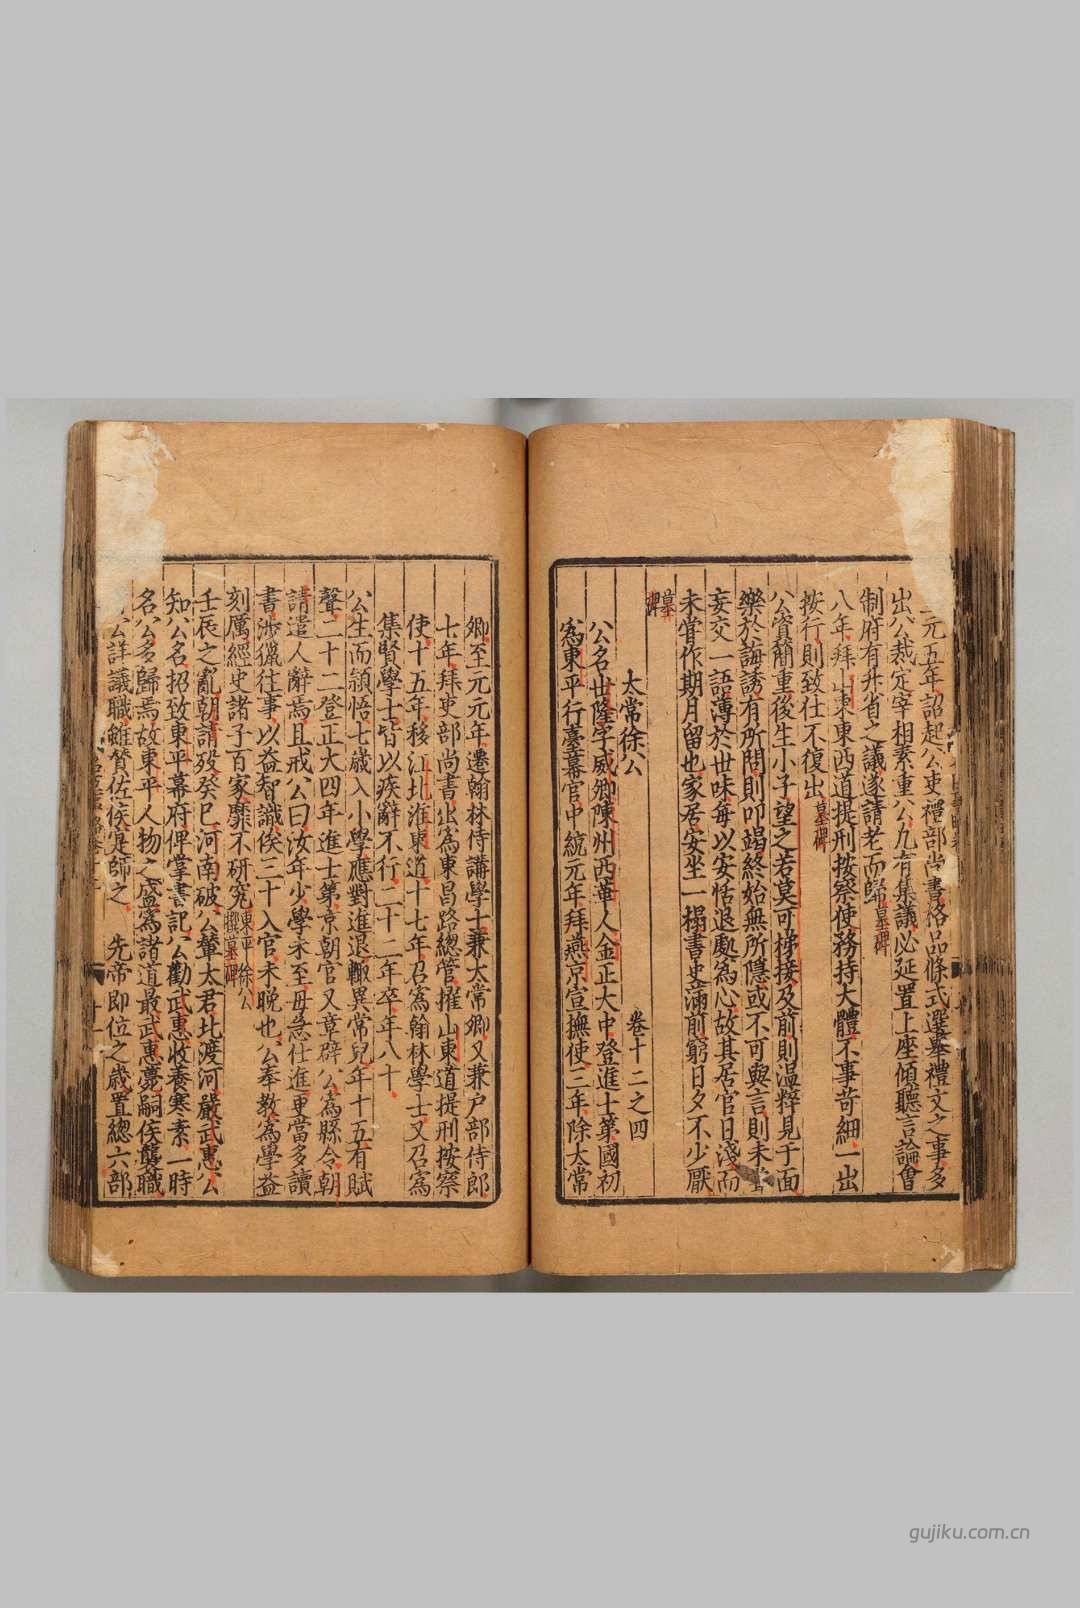 元五年詔起公吏禮部尚書格品條式選舉禮文之事多
出公裁定宰相素重公凡有集議必延置上座傾聽言論會
制府有升省之議遂請老而歸墓碑
八年拜山東東西道提刑按察使務持大體不事苛細一出
按行則致仕不復出墓碑
公資簡重後生小子望之若莫可梯接及前則温粹見于面
樂於誨誘有所問則叩竭終始無所隱或不可與言則未嘗
妄交一語薄於世味每以安恬退處為心故其居官日淺而
未嘗作期月留也家居安坐一榻書史滿前窮日夕不少厭
墓碑
太常徐公 卷十二之四
公名世隆字威卿陳州西華人金正大中登進士第國初
為東平行臺幕官中統元年拜燕京宣撫使三年除太常
卿至元元年遷翰林侍講學士兼太常卿又兼户部侍郎
七年拜吏部尚書出為東昌路總管擢山東道提刑按察
使十五年移江北淮東道十七年召為翰林學士又召為
集賢學士皆以疾辭不行二十二年卒年八十
公生而頴悟七歲入小學應對進退輙異常兒年十五有賦
聲二十二登正大四年進士第京朝官又章辟公為縣令朝
請遣人辭焉且戒公曰汝年少學未至毋急仕進更當多讀
書涉獵往事以益智識俟三十入官未晚也公奉教為學益
刻厲經史諸子百家靡不研究東平徐公撰墓碑
壬辰之亂朝請歿癸巳河南破公輦太君北渡河嚴武惠公
知公名招致東平幕府俾掌書記公勸武惠收養寒素一時
名公多歸焉故東平人物之盛為諸道最武惠薨嗣侯襲職
公詳議職雖贊佐侯寔師之 先帝即位之歲置總六部